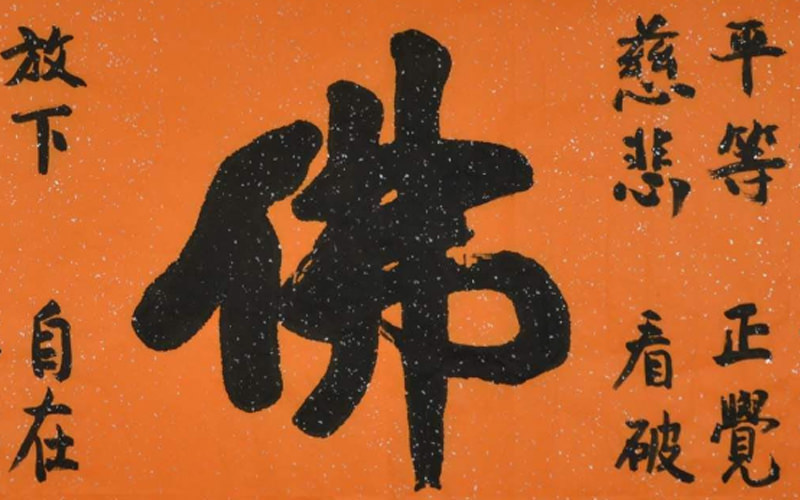 平等 正覺
慈悲 看破
佛
放下 自在